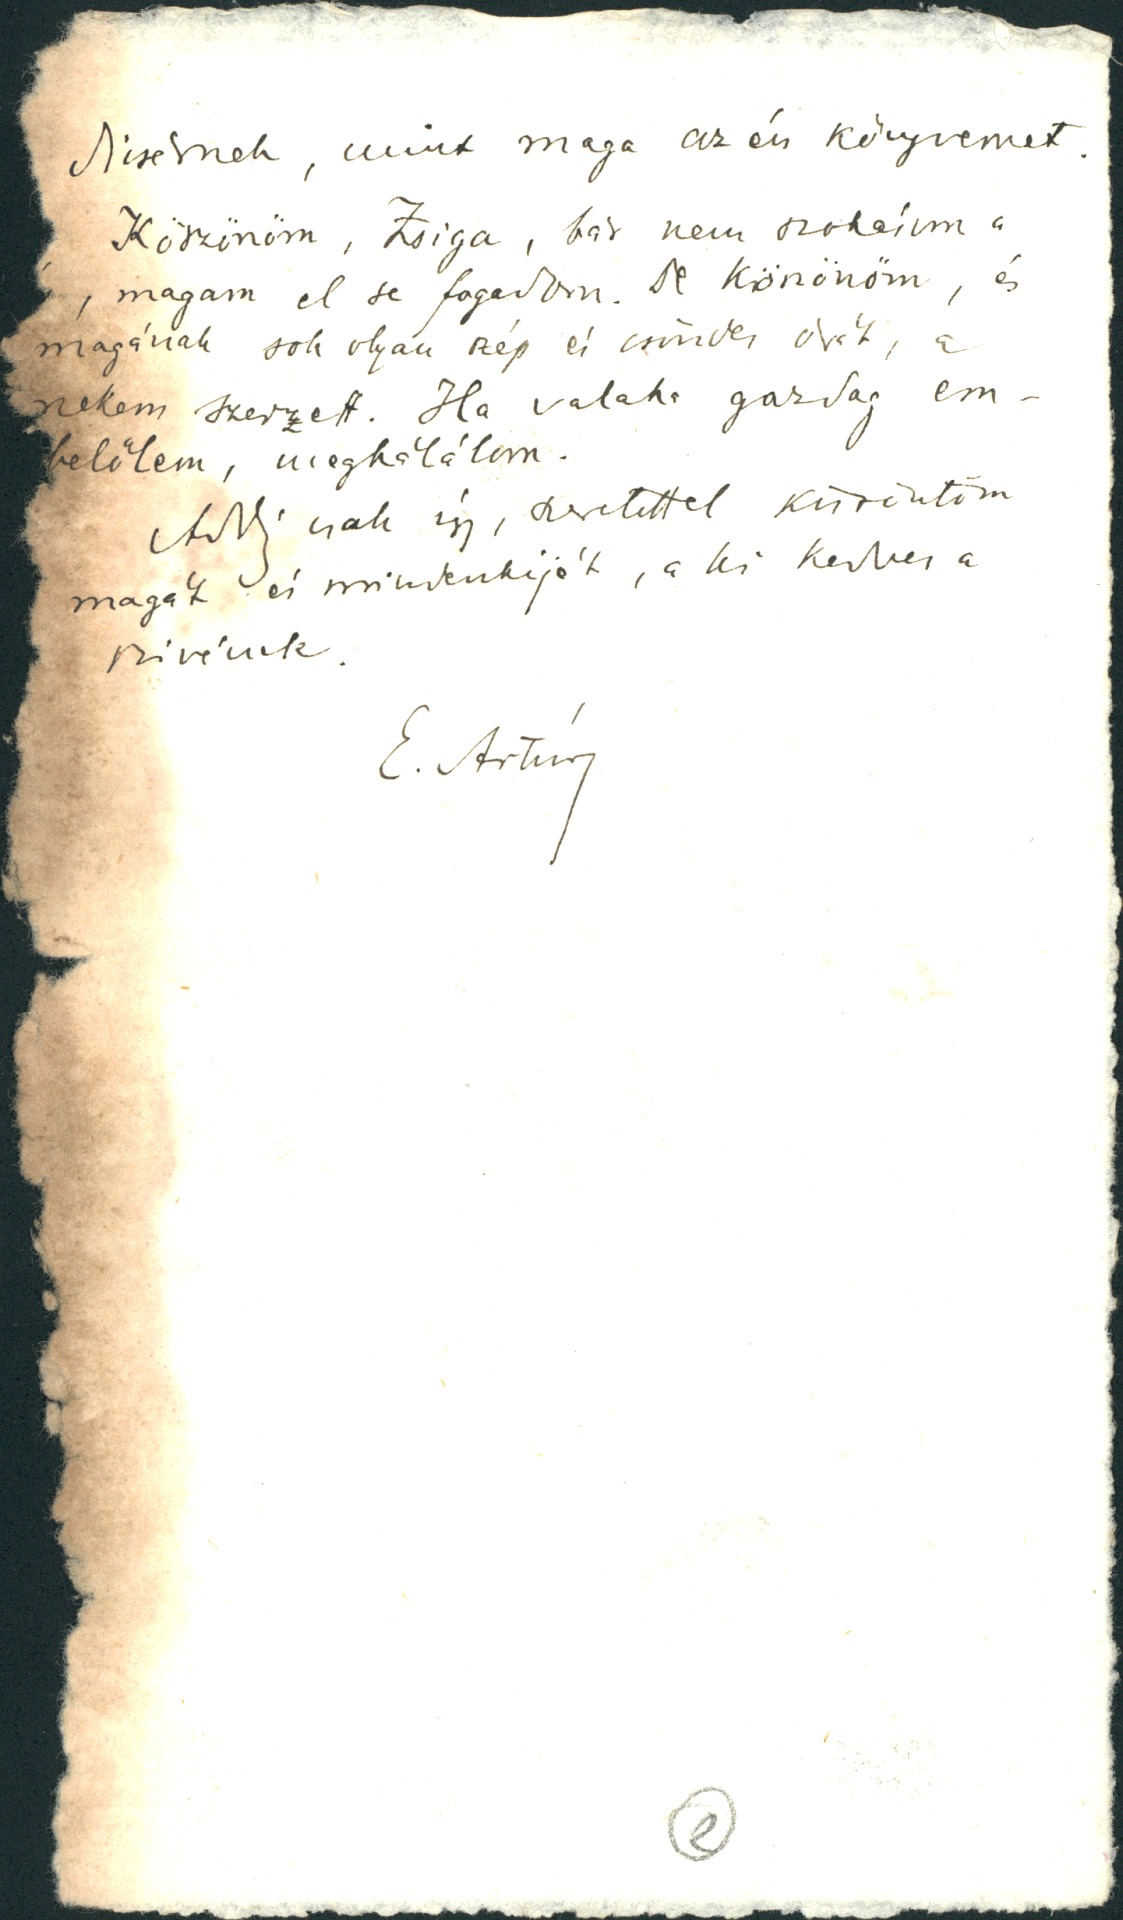 dicsérnek, mint maga az én könyvemet.
Köszönöm, Zsiga, bár nem szokásom a
, magam el se fogadom. De köszönöm, és
magának sok olyan szép és csöndes órát, a
nekem szerzett. Ha valaha gazdag em-
belőlem, meghálálom.
Addig csak így, szeretettel köszöntöm
magát és mindenkijét, a ki kedves a
szivének.
E. Artúr
2